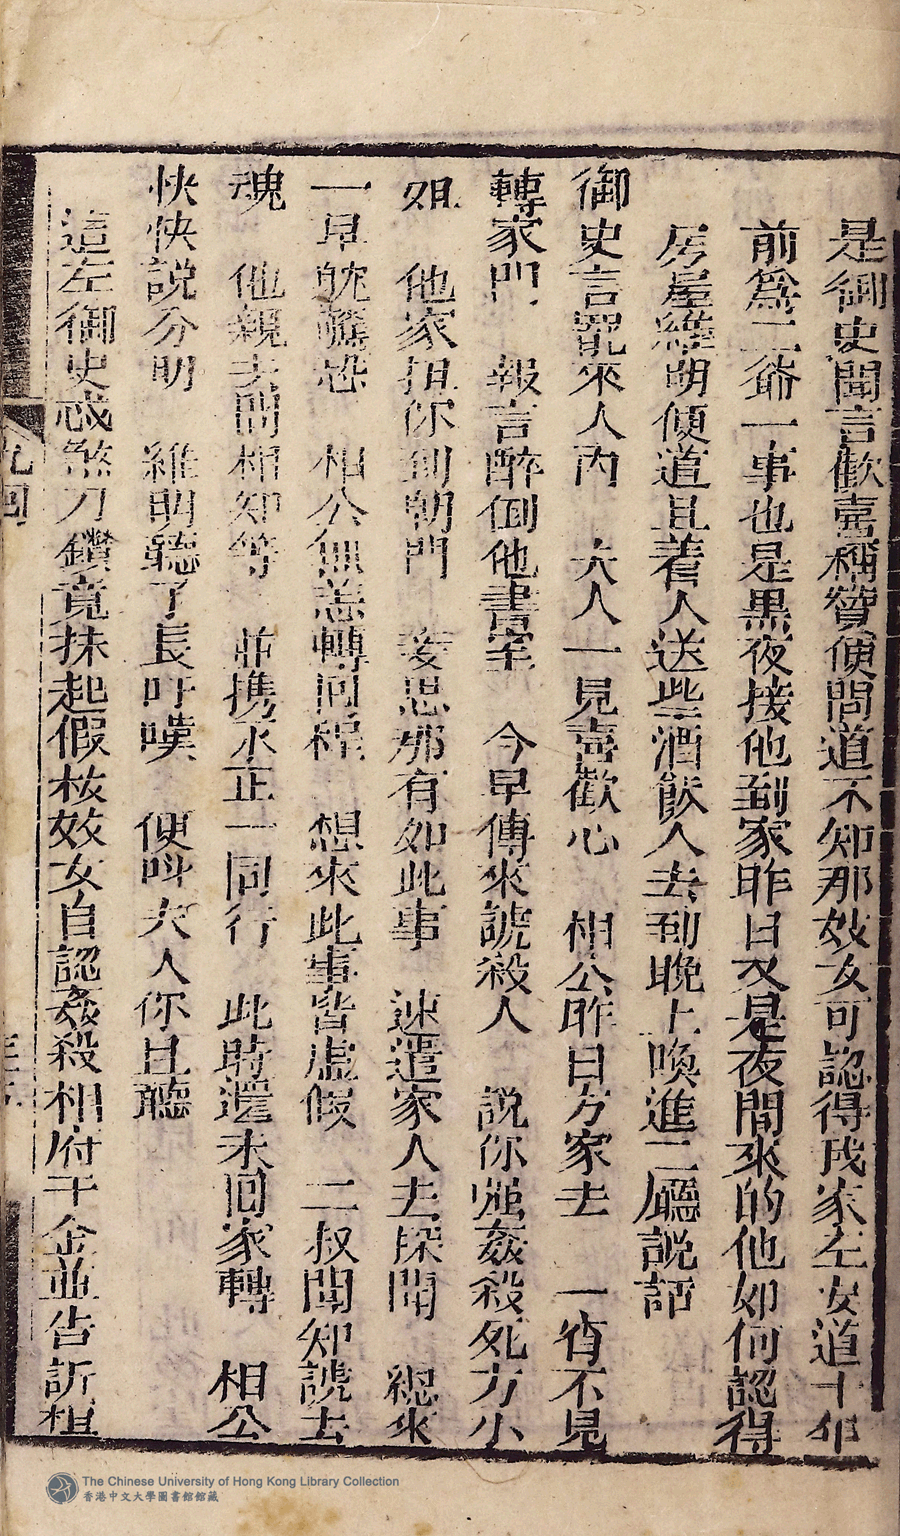 是御史聞言歡喜稱贊便問道不知那妓女可認得我家左安道十年
前爲二爺一事也是黑夜接他到家昨日又是夜間來的他如何認得
房屋維明便道且着人送些酒飲人去到晚上喚進二廳說話
御史言罷來人內　夫人一見喜歡心　相公昨日方家去　一宵不見
轉家門　報言醉倒他書室　今早傳來謊殺人　說你強姦殺死方小
姐　他家扭你到朝門　妾思那有如此事　速遣家人去探聞　總來
一早就驚恐　相公無恙轉回程　想來此事皆虛假　二叔聞知謊去
魂　他親去問相知等　並携永正一同行　此時還未回家轉　相公
快快說分明　維明聽了長吁嘆　便呌夫人你且聽
這左御史惑煞刀鑽竟抹起假核妓女自認姦殺相府千金並告訴相
九回
The Chinese University of Hong Kong Library Collection
香港中文大學圖書館館藏